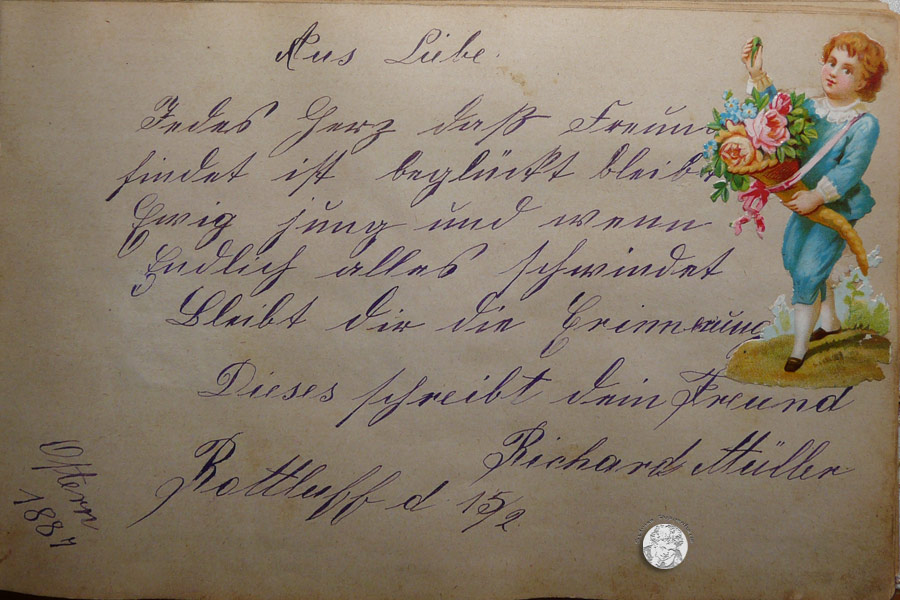 Aus Liebe.
Jedes Herz daß Freun
findet ist beglückt bleibt
Ewig jung und wenn
Endlich alles schwindet
Bleibt dir die Erinnerung
Dieses schreibt dein Freund
Richard Müller
Rottluff d 15/2.
Ostern
1887